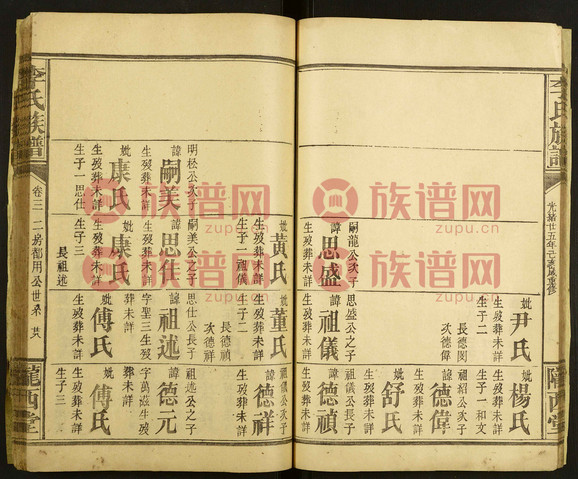 李氏族譜
光緒廿五年己亥歲重修
隴西堂
嗣龍公次子
諱思盛
生歿葬未詳
妣黃氏
生歿葬未詳
生子一祖儀
妣尹氏
生歿葬未詳
生子二
長德閔
次德偉
思盛公之子
諱祖儀
生歿葬未詳
妣董氏
生歿葬未詳
生子二
長德禎
次德祥
妣楊氏
生歿葬未詳
生子一和文
祖紹公次子
諱德偉
生歿葬未詳
妣舒氏
生歿葬未詳
祖儀公長子
諱德禎
生歿葬未詳
祖儀公次子
諱德祥
生歿葬未詳
明松公次子
諱嗣美
生歿葬未詳
妣康氏
生歿葬未詳
生子一思仕
嗣美公之子
諱思佳
生歿葬未詳
妣康氏
生歿葬未詳
生子三
長祖述
思佳公之子
諱祖述
字聖三生歿
葬未詳
妣傅氏
生歿葬未詳
祖述公之子
諱德元
字萬滋生歿
葬未詳
妣傅氏
生歿葬未詳
生子三
李氏族譜
卷三 二房都用公世系 廿六
隴西堂
族谱网
zupu.cn
族谱网
zupu.cn
族谱网
zupu.cn
族谱网
zupu.cn